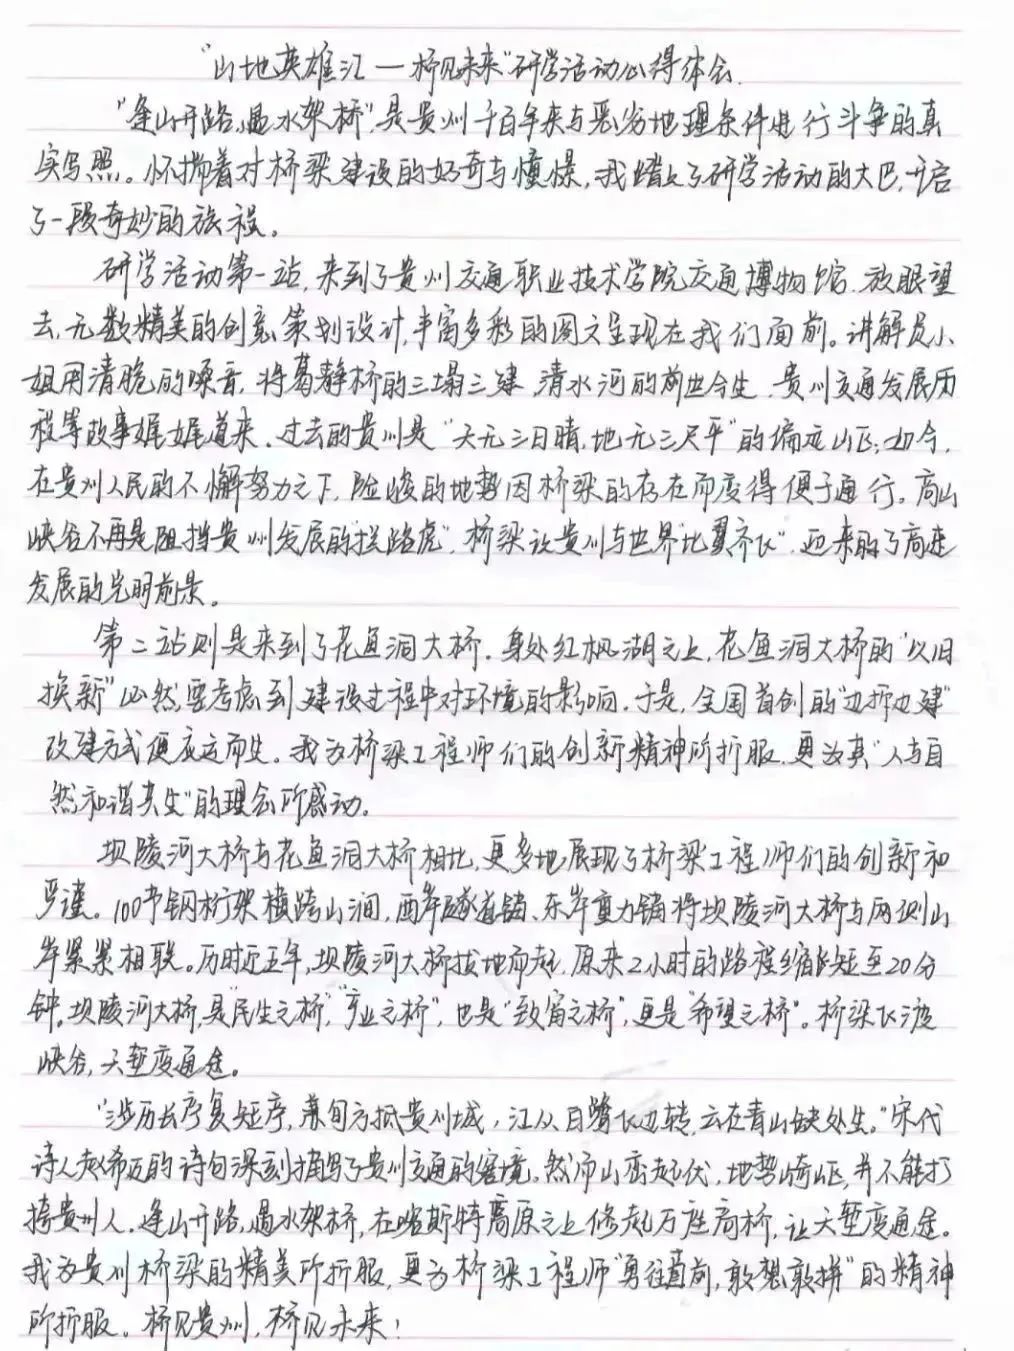 “山地英雄汇—桥见未来”研学活动心得体会.
“逢山开路,遇水架桥”,是贵州千百年来与恶劣地理条件进行斗争的真
实写照。怀揣着对桥梁建设的好奇与憧憬,我踏上了研学活动的大巴,开启
了一段奇妙的旅程。
研学活动第一站,来到了贵州交通职业技术学院交通博物馆.放眼望
去,无数精美的创意策划设计,丰富多彩的图文呈现在我们面前。讲解员小
姐用清脆的嗓音,将葛静桥的三塌三建,清水河的前世今生,贵州交通发展历
程等故事娓娓道来.过去的贵州是“天无三日晴,地无三尺平”的偏远山区;如今,
在贵州人民的不懈努力之下,险峻的地势因桥梁的存在而变得便于通行。高山
峡谷不再是阻挡贵州发展的“拦路虎”,桥梁让贵州与世界“比翼齐飞”,迎来的了高速
发展的光明前景。
第二站则是来到了花鱼洞大桥.身处红枫湖之上,花鱼洞大桥的“以旧
换新”必然要考虑到建设过程中对环境的影响.于是,全国首创的“边拆边建”
改建方式便应运而生。我为桥梁工程师们的创新精神所折服,更为其“人与自
然和谐共生”的理念所感动。
坝陵河大桥与花鱼洞大桥相比,更多地展现了桥梁工程师们的创新和
严谨。100节钢桁架横跨山涧,西岸隧道锚、东岸重力锚将坝陵河大桥与两侧山
岸紧紧相联。历时近五年,坝陵河大桥拔地而起,原来2小时的路程缩短至20分
钟。坝陵河大桥,是“民生之桥”,“产业之桥”,也是“致富之桥”,更是“希望之桥”。桥梁飞渡
峡谷,天堑变通途。
“涉历长亭复短亭,兼旬方抵贵州城,江从白鹭飞边转,云在青山缺处生。”宋代
诗人赵希迈的诗句深刻描写了贵州交通的窘境。然而山峦起伏,地势崎岖,并不能打
垮贵州人.逢山开路,遇水架桥,在喀斯特高原之上修起万座高桥,让天堑变通途。
我为贵州桥梁的精美所折服,更为桥梁工程师“勇往直前,敢想敢拼”的精神
所折服。桥见贵州,桥见未来!